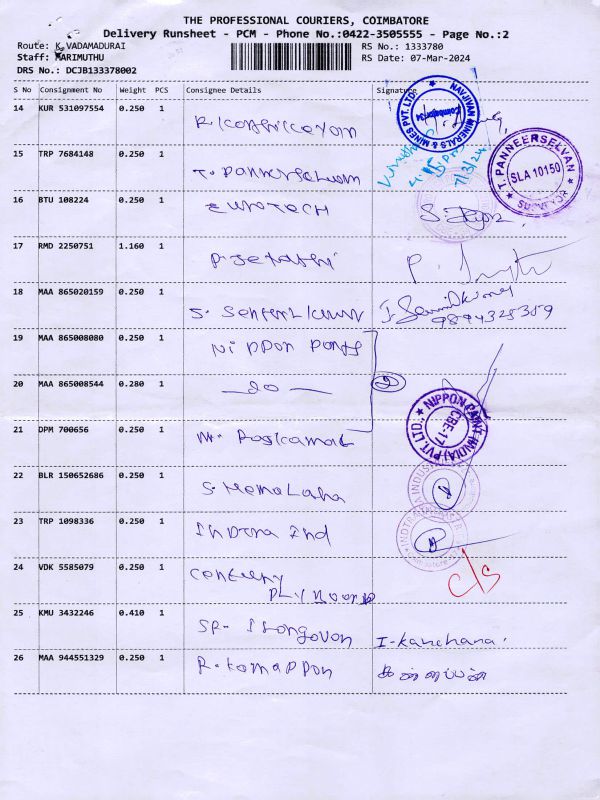 THE PROFESSIONAL COURIERS, COIMBATORE
Delivery Runsheet - PCM - Phone No.:0422-3505555 - Page No.:2
Route: K. VADAMADURAI RS No.: 1333780
Staff: MARIMUTHU RS Date: 07-Mar-2024
DRS No.: DCJB133378002
S No Consignment No Weight PCS Consignee Details Signature
14 KUR 531097554 0.250 1
NAVJIVAN MINERALS & MINES PVT. LTD.
Coimbatore-34
7/3/24
15 TRP 7684148 0.250 1 T. Pannerselvam
T. PANNEERSELVAN
SLA 10150
SURVEYOR
16 BTU 108224 0.250 1 EUROTECH
17 RMD 2250751 1.160 1 P. Jeyanthi
18 MAA 865020159 0.250 1 S. Senthil Kumar
9894325359
19 MAA 865008080 0.250 1 Nippon Paints
20 MAA 865008544 0.280 1 — do — 2
NIPPON PAINT (INDIA) PVT. LTD.
CBE-17
21 DPM 700656 0.250 1
22 BLR 150652686 0.250 1 S. Hemalatha
23 TRP 1098336 0.250 1 Indtra Ind
24 VDK 5585079 0.250 1 Century
Plywoord
c/s
25 KMU 3432246 0.410 1 SP. Ilongovon I-kanchana.
26 MAA 944551329 0.250 1 R. Kamappon